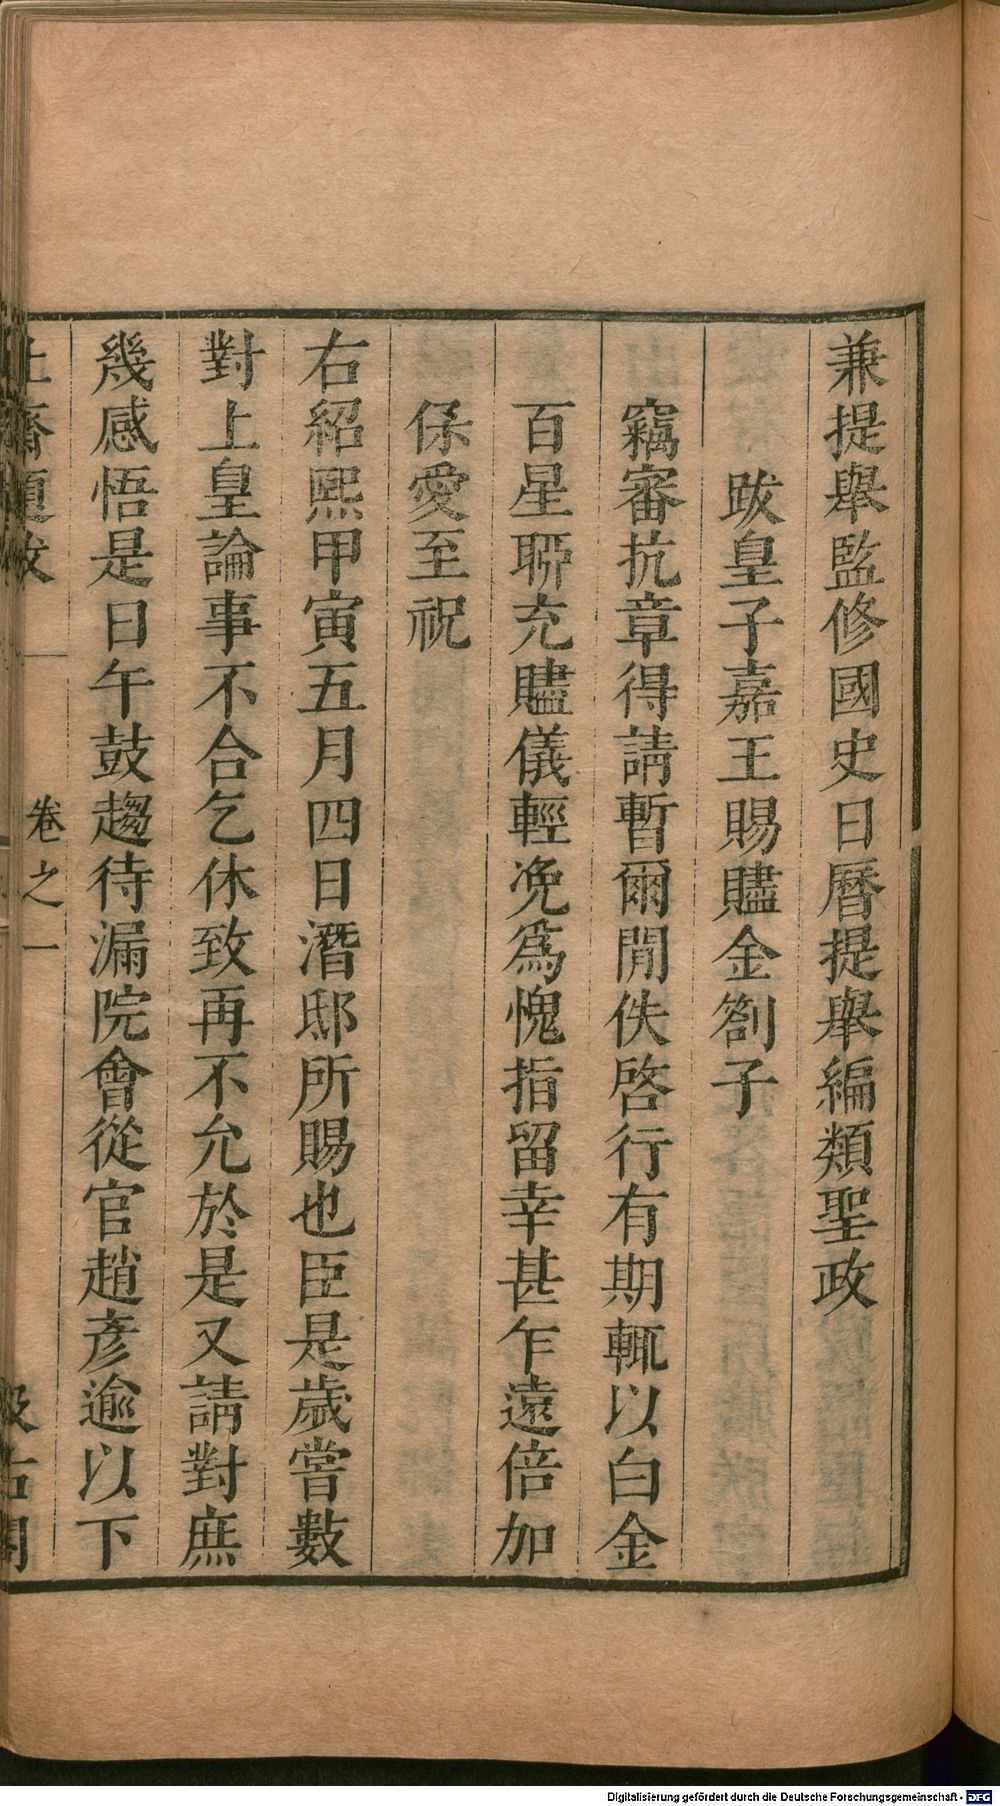 兼提舉監修國史日曆提舉編類聖政
跋皇子嘉王賜贐金劄子
竊審抗章得請暫爾閒佚啓行有期輒以白金
百星聊充贐儀輕浼爲愧指留幸甚乍遠倍加
保愛至祝
右紹熙甲寅五月四日潛邸所賜也臣是歲嘗數
對上皇論事不合乞休致再不允於是又請對庶
幾感悟是日午鼓趨待漏院會從官趙彥逾以下
卷之一
Digitalisierung gefördert durch die Deutsche Forschungsgemeinschaft - DFG